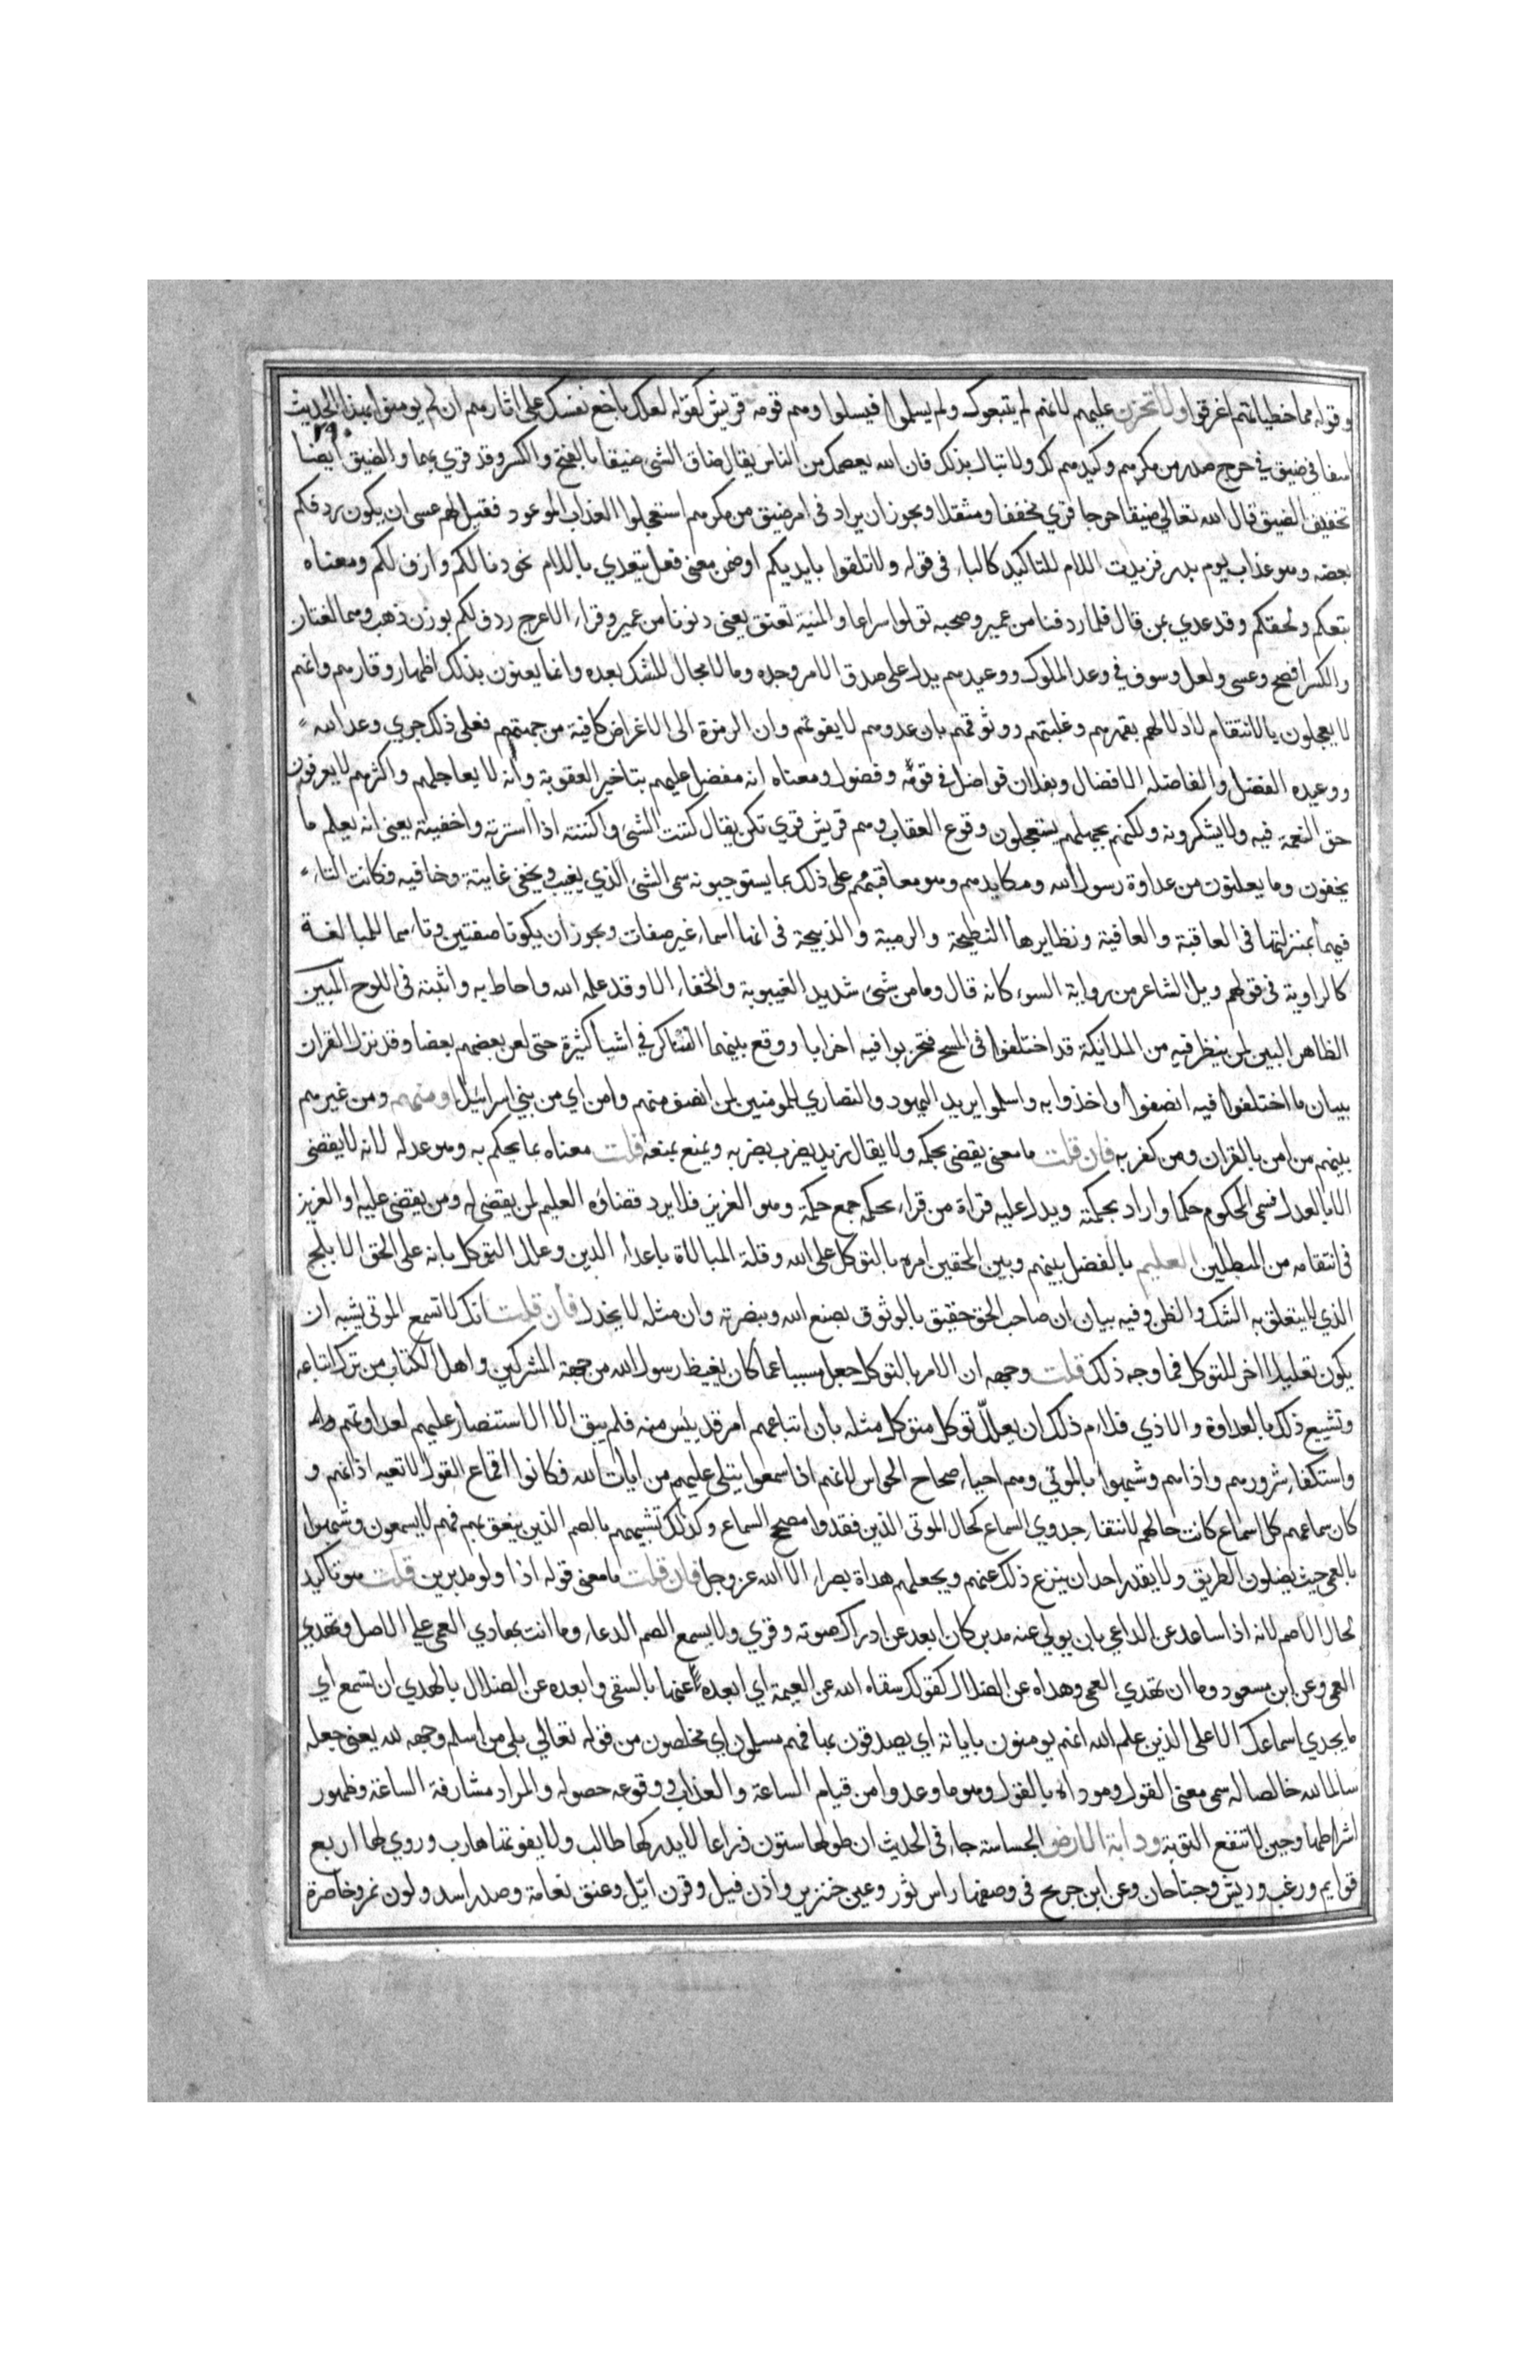 وقوله مما خطياتهم اغرقوا ولا تحزن عليهم لانهم لم يتبعوك ولم يسلموا فيسلوا وهم قومه قريش كقوله لعلك باخع نفسك على اثارهم ان لم يومنوا بهذا الحديث
٢٩٠
اسفا في ضيق في حرج صدر من مكرهم وكيدهم لك ولا تبال بذلك فان الله يعصمك من الناس يقال ضاق الشي ضيقا بالفتح والكسر وقد قري بهما والضيق ايضا
تخفيف الضيق قال الله تعالي ضيقا حرجا قري مخففا ومثقلا ويجوز ان يراد في امر ضيق من مكرهم استعجلوا العذاب الموعود فقيل لهم عسى ان يكون ردفكم
بعضه وهو عذاب يوم بدر فزيدت اللام للتاكيد كالباء في قوله ولا تلقوا بايديكم او ضمن معنى فعل يتعدي باللام نحو دنا لكم وازف لكم ومعناه
تبعكم ولحقكم وقد عدي بمن قال فلما ردفنا من عمير وصحبه تولوا سراعا والمنية تعنق يعنى دنونا من عمير وقراء الاعرج ردف لكم بوزن ذهب وهما لغتان
والكسر افصح وعسى ولعل وسوف في وعد الملوك ووعيدهم يدل على صدق الامر وجده وما لا مجال للشك بعده وانما يعنون بذلك اظهار وقارهم وانهم
لا يعجلون بالانتقام لادلالهم بقهرهم وغلبتهم ووثوقهم بان عدوهم لا يفوتهم وان الرمزة الى الاغراض كافية من جهتهم فعلى ذلك جري وعد الله
ووعيده الفضل والفاضله الافضال وبفلان فواضل في قومه وفضول ومعناه انه مفضل عليهم بتاخير العقوبة وانه لا يعاجلهم واكثرهم لا يعرفون
حق النعمة فيه ولا يشكرونه ولكنهم بجهلهم يستعجلون وقوع العقاب وهم قريش قري تكن يقال كننت الشئ واكننته اذا استرته واخفيته يعنى انه يعلم ما
يخفون وما يعلنون من عداوة رسول الله ومكايدهم وهو معاقبهم على ذلك بما يستوجبونه سمى الشئ الذي يغيب ويخفى غايبة وخافيه فكانت التاء
فيهما بمنزلتها في العاقبة والعافية ونظايرها النطيحة والرمية والذبيحة في انها اسماء غير صفات ويجوز ان يكونا صفتين وتاءهما للمبالغة
كالراوية في قولهم ويل الشاعر من رواية السوء كانه قال وما من شئ شديد الغيبوبة والخفاء الا وقد علمه الله واحاط به واثبته في اللوح المبين
الظاهر البين لمن ينظر فيه من الملائكة قد اختلفوا في المسح فتحزبوا فيه احزابا ووقع بينهما التناكر في اشيا كثيرة حتى لعن بعضهم بعضا وقد نزل القران
ببيان ما اختلفوا فيه انصفوا واخذوا به واسلموا يريد اليهود والنصاري للمومنين لمن انصف منهم وامن اي من بني اسرائيل او منهم ومن غيرهم
بينهم من امن بالقران ومن كفر به فان قلت ما معنى يقضى بحكمه ولا يقال زيد يضرب بضربه ويمنع بمنعه قلت معناه بما يحكم به وهو عدله لانه لا يقضى
الا بالعدل فسمى المحكوم حكما واراد بحكمته ويدل عليه قراة من قراء بحكمه جمع حكمة وهو العزيز فلا يرد قضاؤه العليم لمن يقضى له ومن يقضى عليه او العزيز
في انتقامه من المبطلين العليم بالفضل بينهم وبين المحقين امره بالتوكل على الله وقلة المبالاة باعداء الدين وعلل التوكل بانه على الحق الابلج
الذي لا يتعلق به الشك والظن وفيه بيان ان صاحب الحق حقيق بالوثوق بصنع الله وبنصرته وان مثله لا يخذل فان قلت انك لا تسمع الموتى يشبه ان
يكون تعليلا اخر للتوكل فما وجه ذلك قلت وجهه ان الامر بالتوكل جعل مسببا عما كان يغيظ رسول الله من جهة المشركين واهل الكتاب من ترك اتباعه
وتشييع ذلك بالعداوة والاذي فلاءم ذلك ان يعلل توكل متوكل مثله بان اتباعهم امر قد يئس منه فلم يبق الا الاستنصار عليهم لعداوتهم
واستكفاء شرورهم واذاهم وشبهوا بالموتي وهم احياء صحاح الحواس لانهم اذا سمعوا يتلى عليهم من ايات الله فكانوا اقماع القول لا تعيه اذانهم و
كان سماعهم كلا سماع كانت حالهم لانتفاء جدوي السماع كحال الموتى الذين فقدوا مصحح السماع وكذلك تشبيههم بالصم الذين ينعق بهم فهم لا يسمعون وشبهوا
بالعمي حيث يضلون الطريق ولا يقدر احد ان ينزع ذلك عنهم ويجعلهم هداة بصراء الا الله عز وجل فان قلت ما معنى قوله اذا ولو مدبرين قلت هو تاكيد
لحال الاصم لانه اذا تباعد عن الداعي بان يولي عنه مدبر كان ابعد عن ادراك صوته وقري ولا يسمع الصم الدعاء وما انت بهادي العمى على الاصل وتهدي
العمى وعن ابن مسعود وما ان تهدي العمى وهداه عن الضلال كقولك سقاه الله عن العيمة اي ابعده عنها بالسقى وابعده عن الضلال بالهدي ان تسمع اي
ما يجدي اسماعك الا على الذين علم الله انهم يومنون باياته اي يصدقون بها فهم مسلمون اي مخلصون من قوله تعالي بلى من اسلم وجهه لله يعنى جعله
سالما لله خالصا له سمى معنى القول ومودا‌ه بالقول وهو ما وعدوا من قيام الساعة والعذاب ووقوعه حصوله والمراد مشارفة الساعة وظهور
اشراطها وحين لا تنفع التوبة ودابة الارض الجساسة جاء في الحديث ان طولها ستون ذراعا لا يدركها طالب ولا يفوتها هارب وروي لها اربع
قوايم وزغب وريش وجناحان وعن ابن جريح في وصفها راس ثور وعين خنزير واذن فيل وقرن ايل وعنق نعامة وصدر اسد ولون نمر وخاصرة